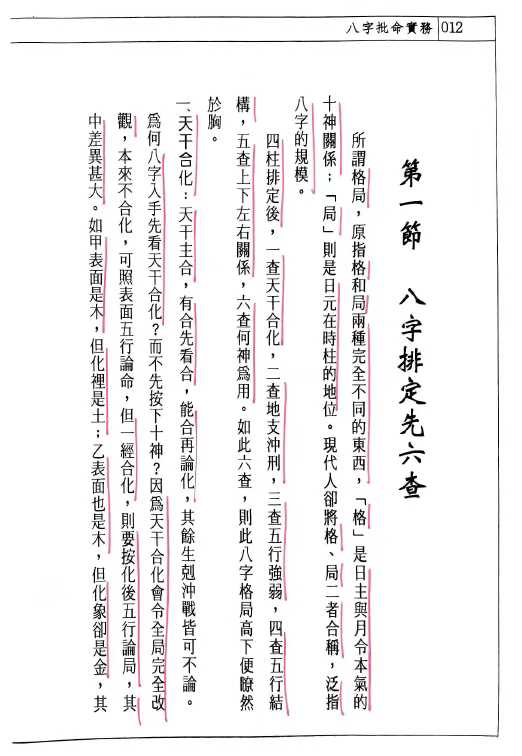 八字批命實務 012
第一節　八字排定先六查
所謂格局，原指格和局兩種完全不同的東西，「格」是日主與月令本氣的
十神關係；「局」則是日元在時柱的地位。現代人卻將格、局二者合稱，泛指
八字的規模。
四柱排定後，一查天干合化，二查地支沖刑，三查五行強弱，四查五行結
構，五查上下左右關係，六查何神爲用。如此六查，則此八字格局高下便瞭然
於胸。
一、天干合化：天干主合，有合先看合，能合再論化，其餘生剋沖戰皆可不論。
爲何八字入手先看天干合化？而不先按下十神？因爲天干合化會令全局完全改
觀，本來不合化，可照表面五行論命，但一經合化，則要按化後五行論局，其
中差異甚大。如甲表面是木，但化裡是土；乙表面也是木，但化象卻是金，其